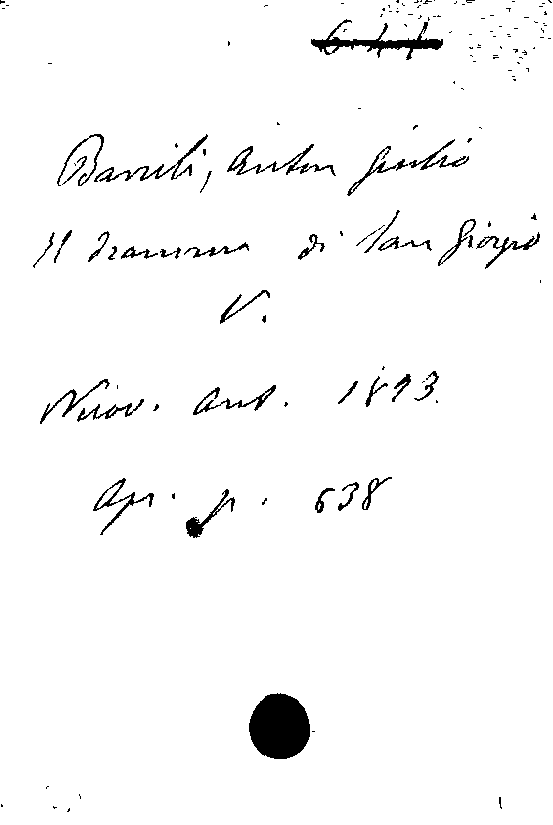 Barrili, Anton Giulio
Il dramma di San Giorgio
V.
Nuov. Ant. 1893.
Apr. p. 638